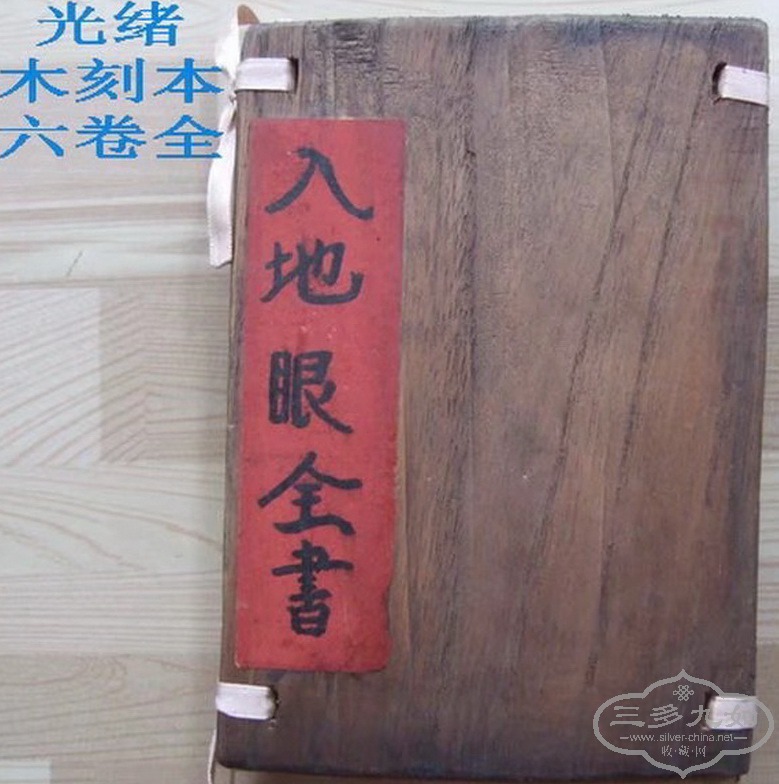 光绪
木刻本
六卷全
入地眼全書
三多九如
www.silver-china.net
收·藏·网